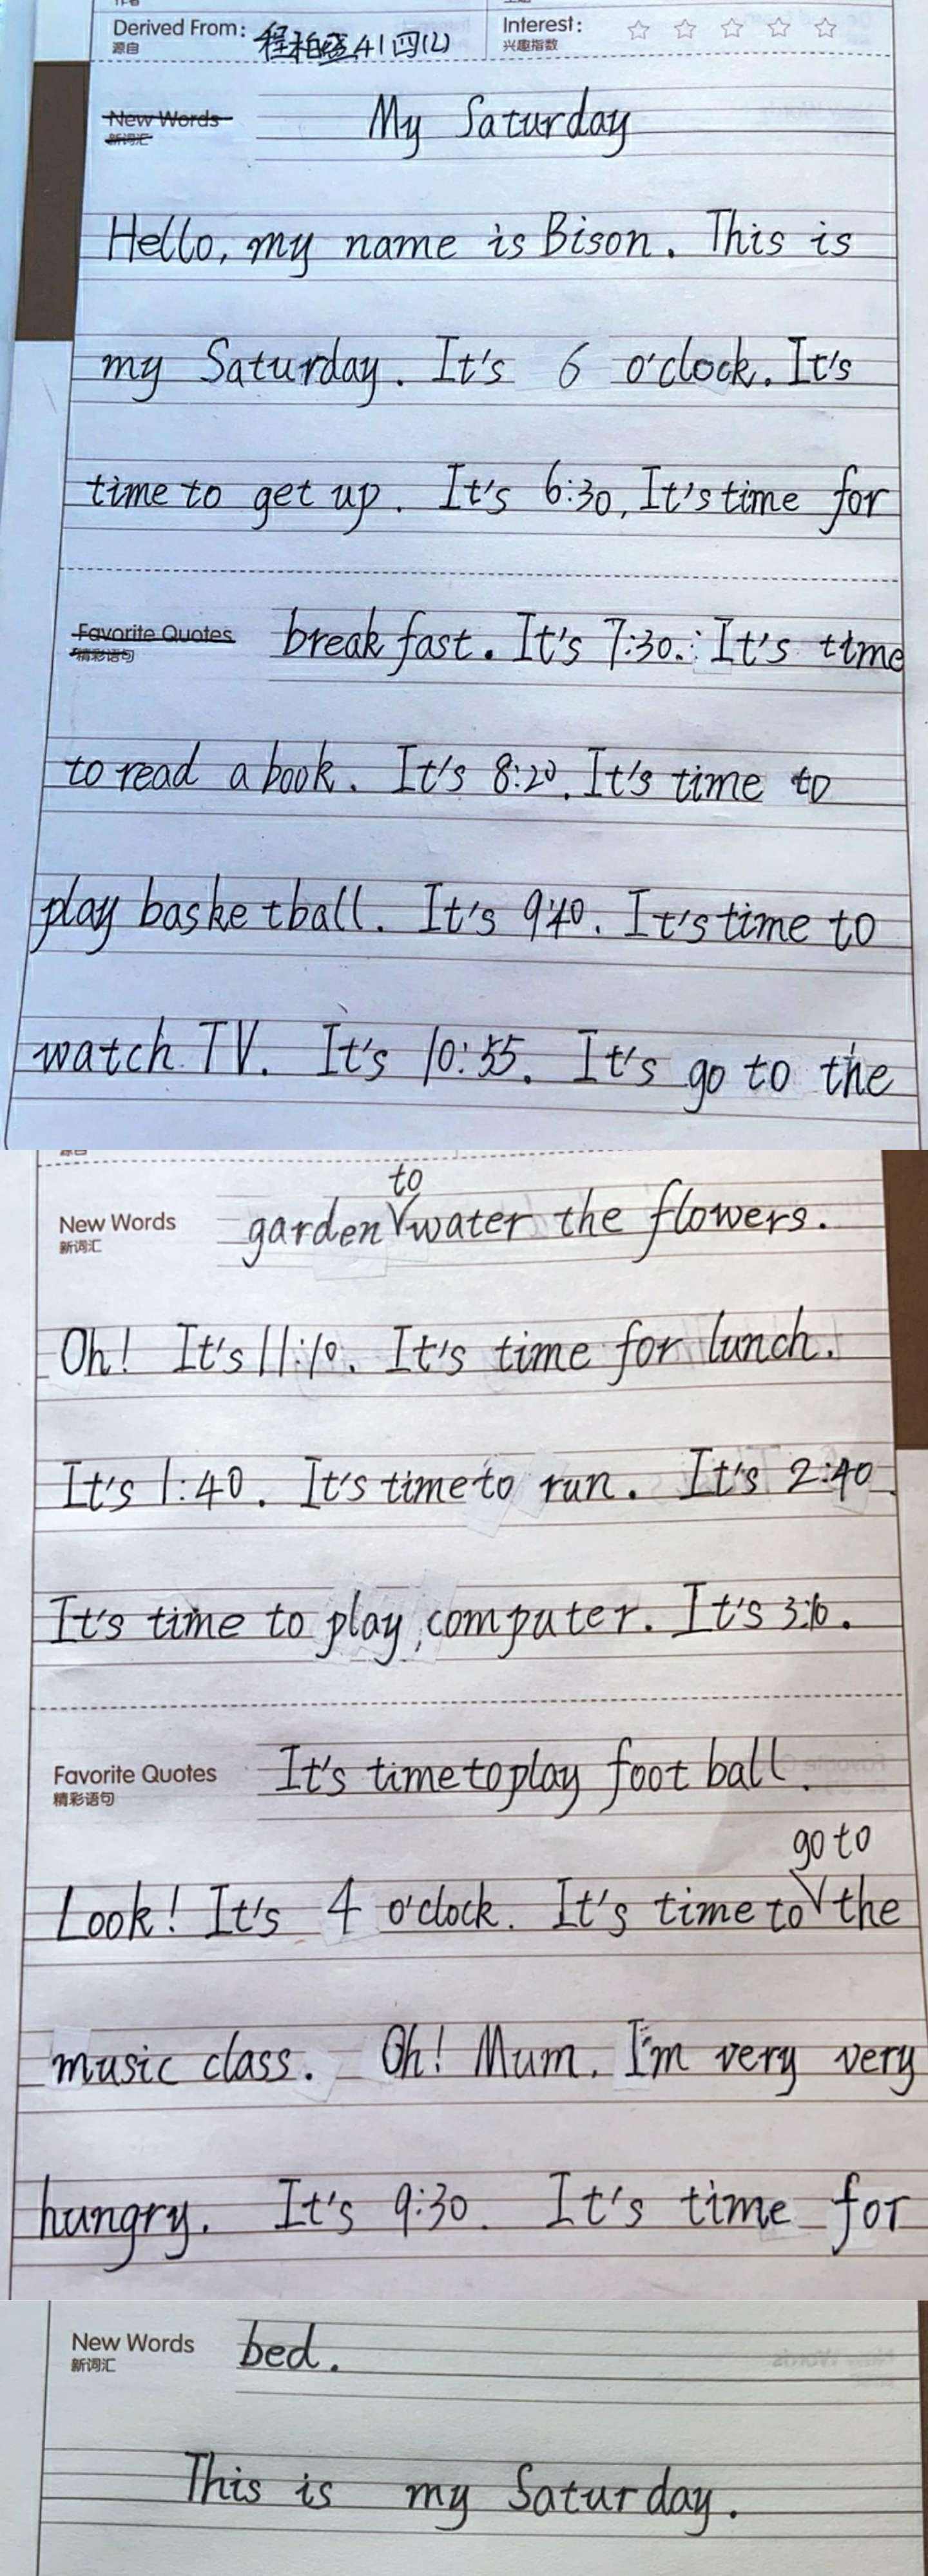 Derived From: 程柏盛41四(2) Interest: ☆ ☆ ☆ ☆ ☆
源自 兴趣指数
New Words My Saturday
新词汇
Hello, my name is Bison. This is
my Saturday. It's 6 o'clock. It's
time to get up. It's 6:30. It's time for
Favorite Quotes breakfast. It's 7:30. It's time
精彩语句
to read a book. It's 8:20. It's time to
play basketball. It's 9:40. It's time to
watch TV. It's 10:55. It's go to the
to
New Words garden water the flowers.
新词汇
Oh! It's 11:10. It's time for lunch.
It's 1:40. It's time to run. It's 2:40.
It's time to play computer. It's 3:10.
Favorite Quotes It's time to play football.
精彩语句
go to
Look! It's 4 o'clock. It's time to the
music class. Oh! Mum. I'm very very
hungry. It's 9:30. It's time for
New Words bed.
新词汇
This is my Saturday.